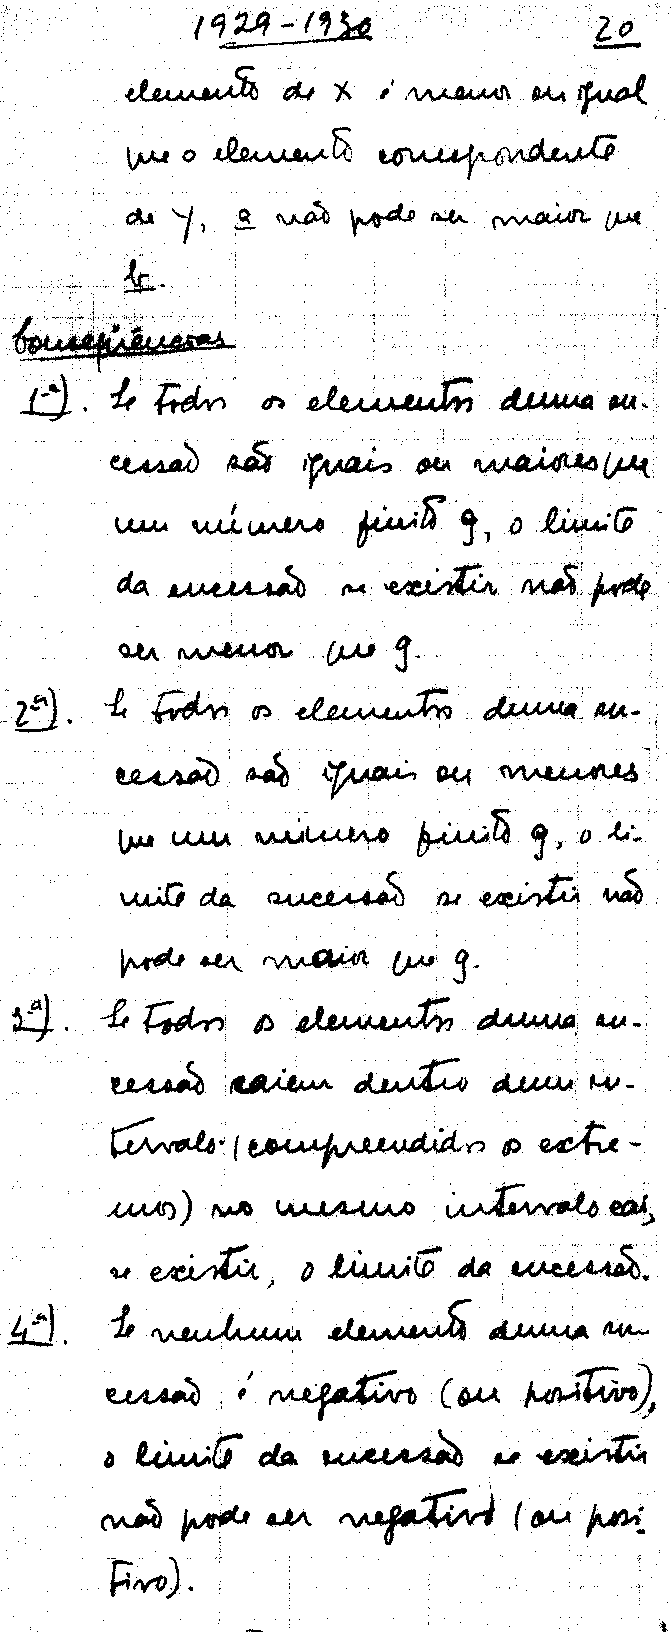 1929-1930 20
elemento de X é menor ou igual
que o elemento correspondente
de Y, a não pode ser maior que
b.
Consequências
1ª). Se todos os elementos duma su-
cessão são iguais ou maiores que
um número finito g, o limite
da sucessão se existir não pode
ser menor que g.
2ª). Se todos os elementos duma su-
cessão são iguais ou menores
que um número finito g, o li-
mite da sucessão se existir não
pode ser maior que g.
3ª). Se todos os elementos duma su-
cessão caiem dentro dum in-
tervalo (compreendidos os extre-
mos) no mesmo intervalo cai,
se existir, o limite da sucessão.
4ª). Se nenhum elemento duma su-
cessão é negativo (ou positivo),
o limite da sucessão se existir
não pode ser negativo (ou posi-
tivo).